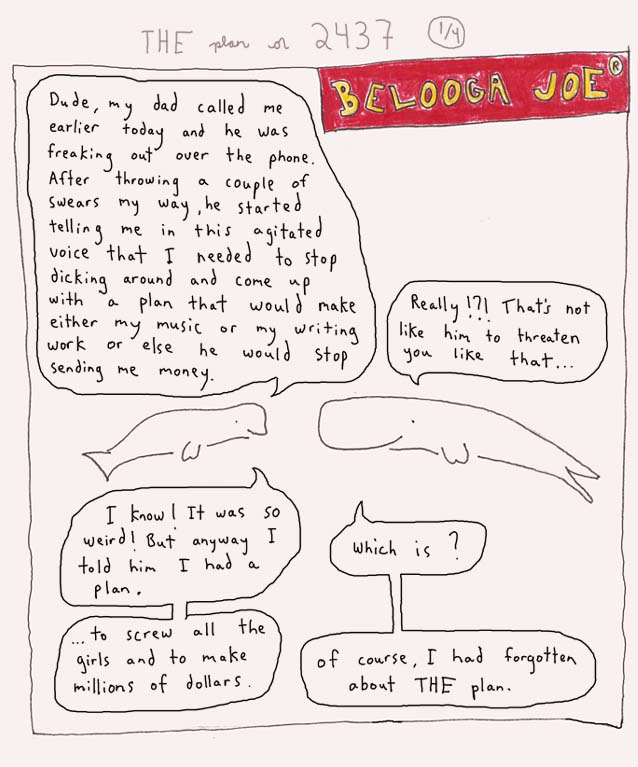 THE plan or 2437 1/4
BELOOGA JOE®
Dude, my dad called me
earlier today and he was
freaking out over the phone.
After throwing a couple of
swears my way, he started
telling me in this agitated
voice that I needed to stop
dicking around and come up
with a plan that would make
either my music or my writing
work or else he would stop
sending me money.
Really !?! That's not
like him to threaten
you like that...
I know! It was so
weird! But anyway I
told him I had a
plan.
which is ?
...to screw all the
girls and to make
millions of dollars.
of course, I had forgotten
about THE plan.